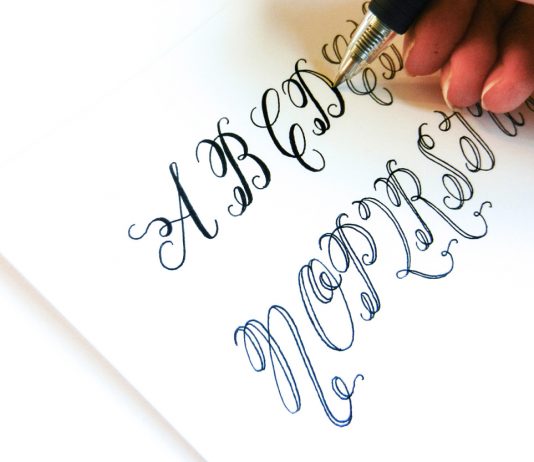 A B C D E
N O P Q R S T